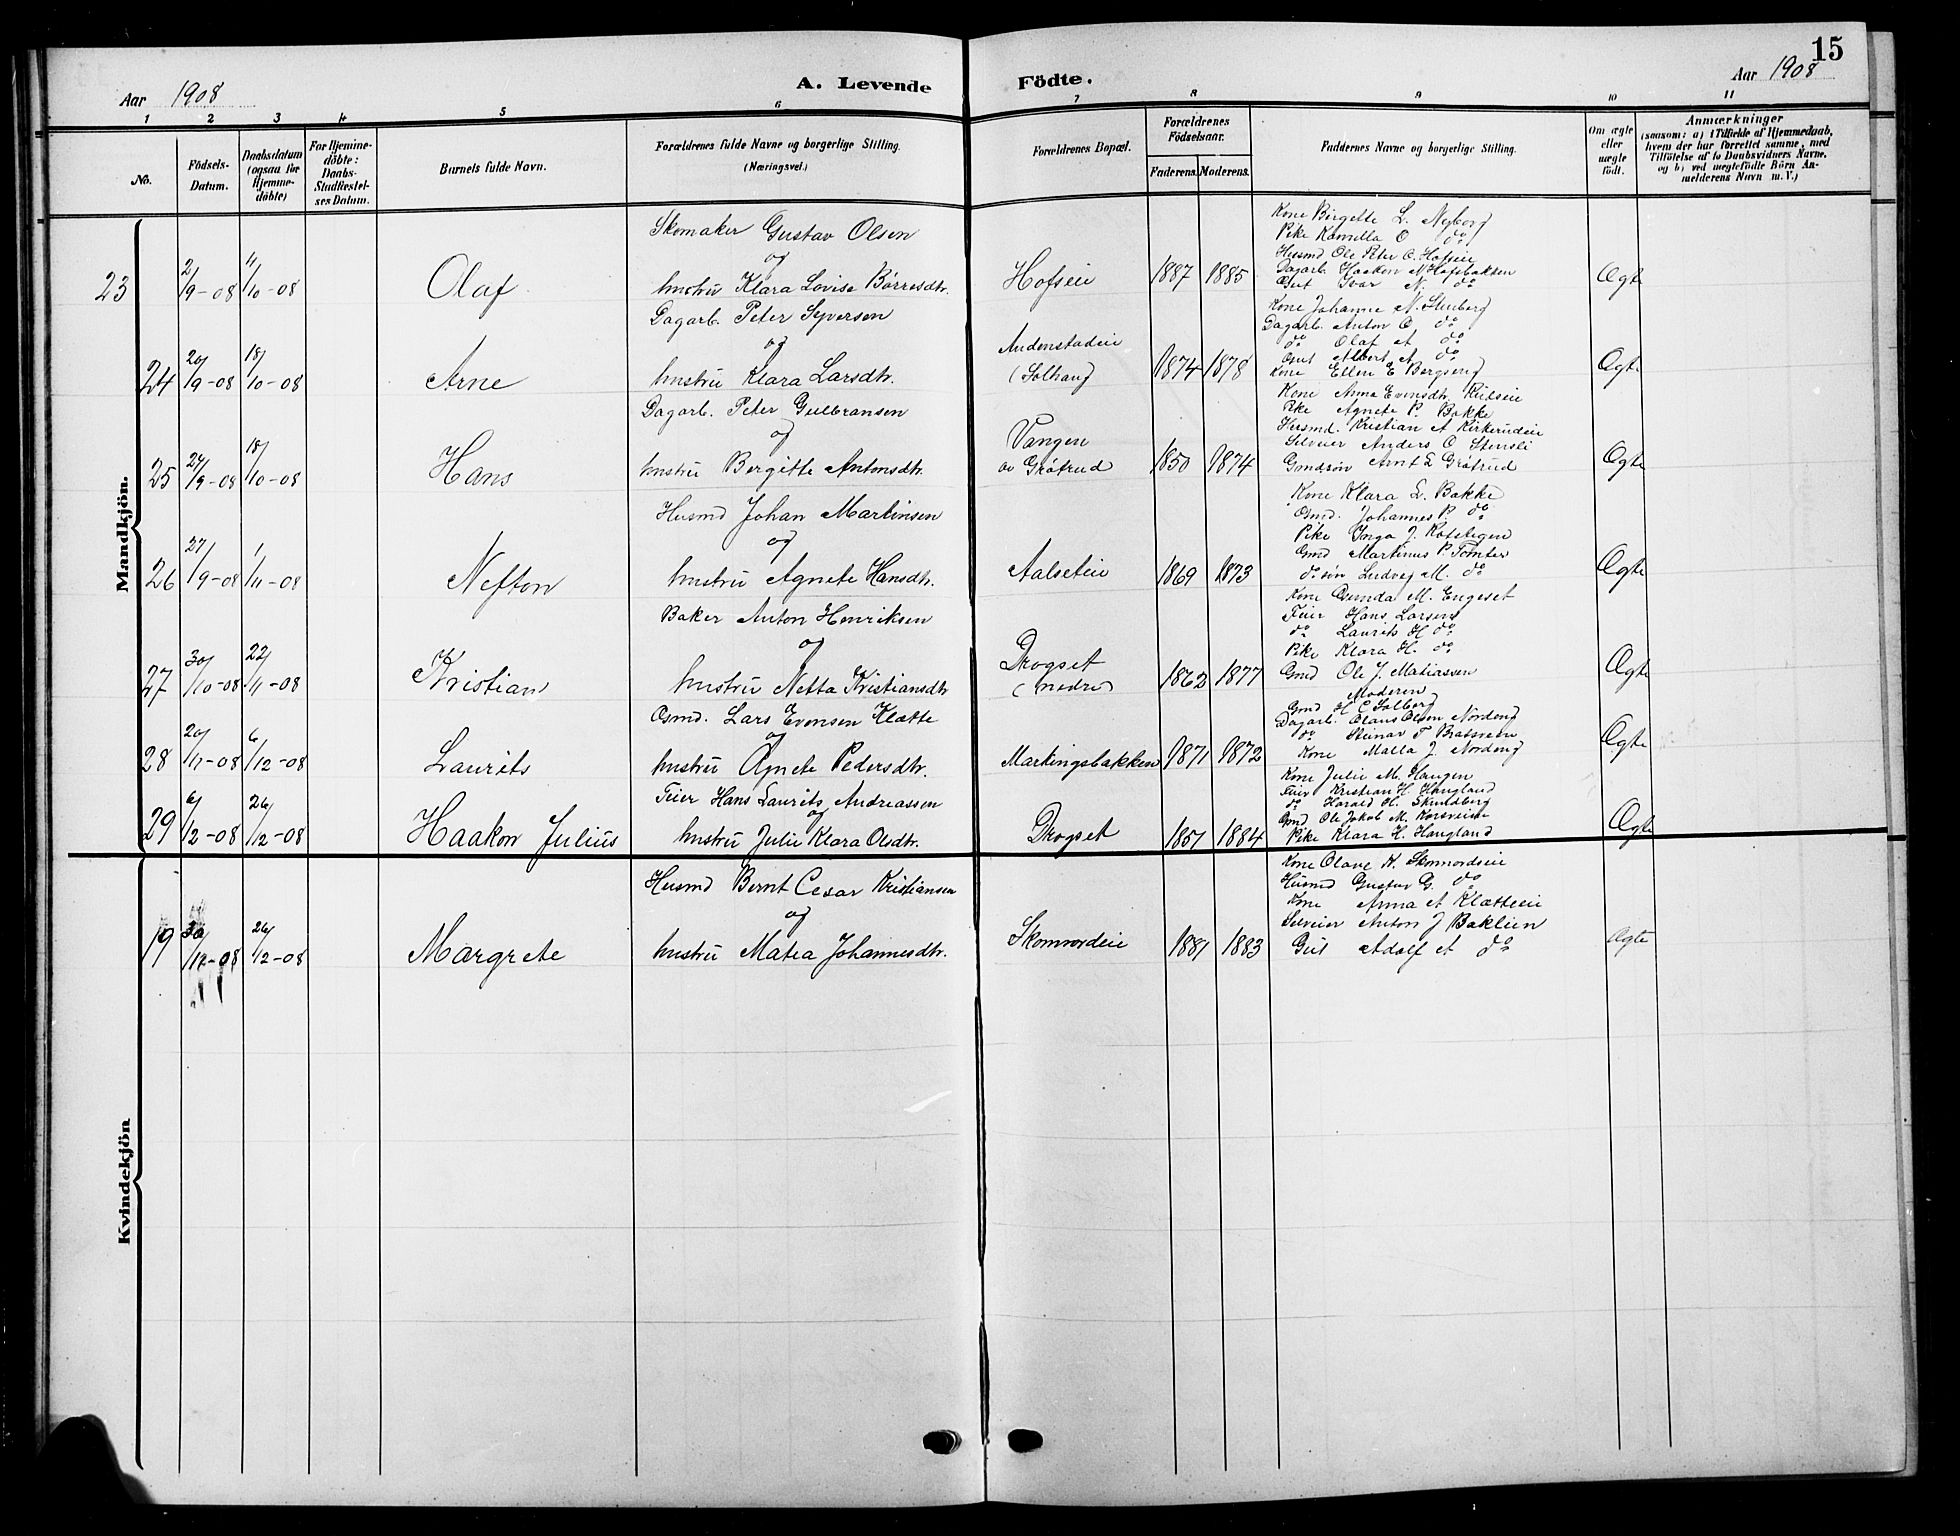 15
Aar 1908
A. Levende Födte.
Aar 1908
1 2 3 4 5 6 7 8 9 10 11
No.
Födsels-Datum.
Daabsdatum (ogsaa for Hjemme-döbte)
For Hjemme-döbte: Daabs-Stadfæstel-ses Datum.
Barnets fulde Navn.
Forældrenes fulde Navne og borgerlige Stilling. (Næringsvei.)
Forældrenes Bopæl.
Forældrenes Födselsaar.
Faderens. Moderens.
Faddernes Navne og borgerlige Stilling.
Om ægte eller uægte födt.
Anmærkninger
(saasom: a) i Tilfælde af Hjemmedaab, hvem der har forrettet samme, med Tilföielse af to Daabsvidners Navne, og b) ved uægtefödte Börn An-melderens Navn m. V.)
Mandkjön.
23 2/9-08 11/10-08 Olaf
Skomaker Gustav Olsen
og
hustru Klara Lovise Børresdtr.
Hofseie 1887 1885
Kone Birgette L. Nyborg
Pike Kamilla O do
Husmd Ole Peter O. Hofseie
Dagarb. Haakon N. Hofsbakken
Gut Ivar N. do
Ægte
24 20/9-08 18/10-08 Arne
Dagarb. Peter Syversen
og
hustru Klara Larsdtr.
Andenstadeie
(Solhaug) 1874 1878
Kone Johanne N. Stenberg
Dagarb. Anton O. do
do Olaf A do
Gut Albert A do
Kone Ellen E Bergseng
Ægte
25 24/9-08 18/10-08 Hans
Dagarb. Peter Gulbransen
og
hustru Bergitte Antonsdtr.
Vangen
av Grøtrud 1850 1874
Kone Anna Evensdtr.
Pike Agnete P. Bakke
Husmd. Kristian A Kirkerudeie
Selveier Anders O Stensli
Gaardsøn Arnt L Grøtrud
Ægte
26 27/9-08 1/11-08 Nefton
Husmd Johan Martinsen
og
hustru Agnete Hansdtr.
Aalseteie 1869 1873
Kone Klara L. Bakke
Gmd. Johannes P do
Pike Inga J.
Gmd Martinus P. Tømter
do søn Ludvig M. do
Ægte
27 30/10-08 22/11-08 Kristian
Baker Anton Henriksen
og
hustru Netta Kristiansdtr
Drogset
(nedre) 1862 1877
Kone M. Engeset
Feier Hans Larsen
do Laurits H do
Pike Klara H. do
Gmd Ole J. Matiassen
Ægte
28 20/11-08 6/12-08 Laurits
Gmd. Lars Evensen Klætte
og
hustru Agnete Pedersdtr.
Martingsbakken 1871 1872
Moderen
Gmd H C Solberg
Dagarb. Olaus Olsen Nordeng
do Steinar T
Kone Malla J. Nordeng
Ægte
29 6/12-08 26/12-08 Haakon Julius
Feier Hans Laurits Andreassen
og
hustru Julie Klara Olsdtr.
Drogset 1851 1884
Kone Julie M. Haugen
Feier Kristian H. Haugland
do Harald H. Skindberg
Gmd Ole Jakob M. Korsveien
Pike Klara H. Haugland
Ægte
Kvindekjön
19 30/12-08 26/12-08 Margrete
Husmd Bernt Cesar Kristiansen
og
hustru Matea Johannesdtr.
Skomordeie 1881 1883
Kone Olave K. Skomordseie
Husmd Gustav G. do
Kone Anna A Klætteeie
Selveier Anton J Baklien
Gut Adolf A do
Ægte